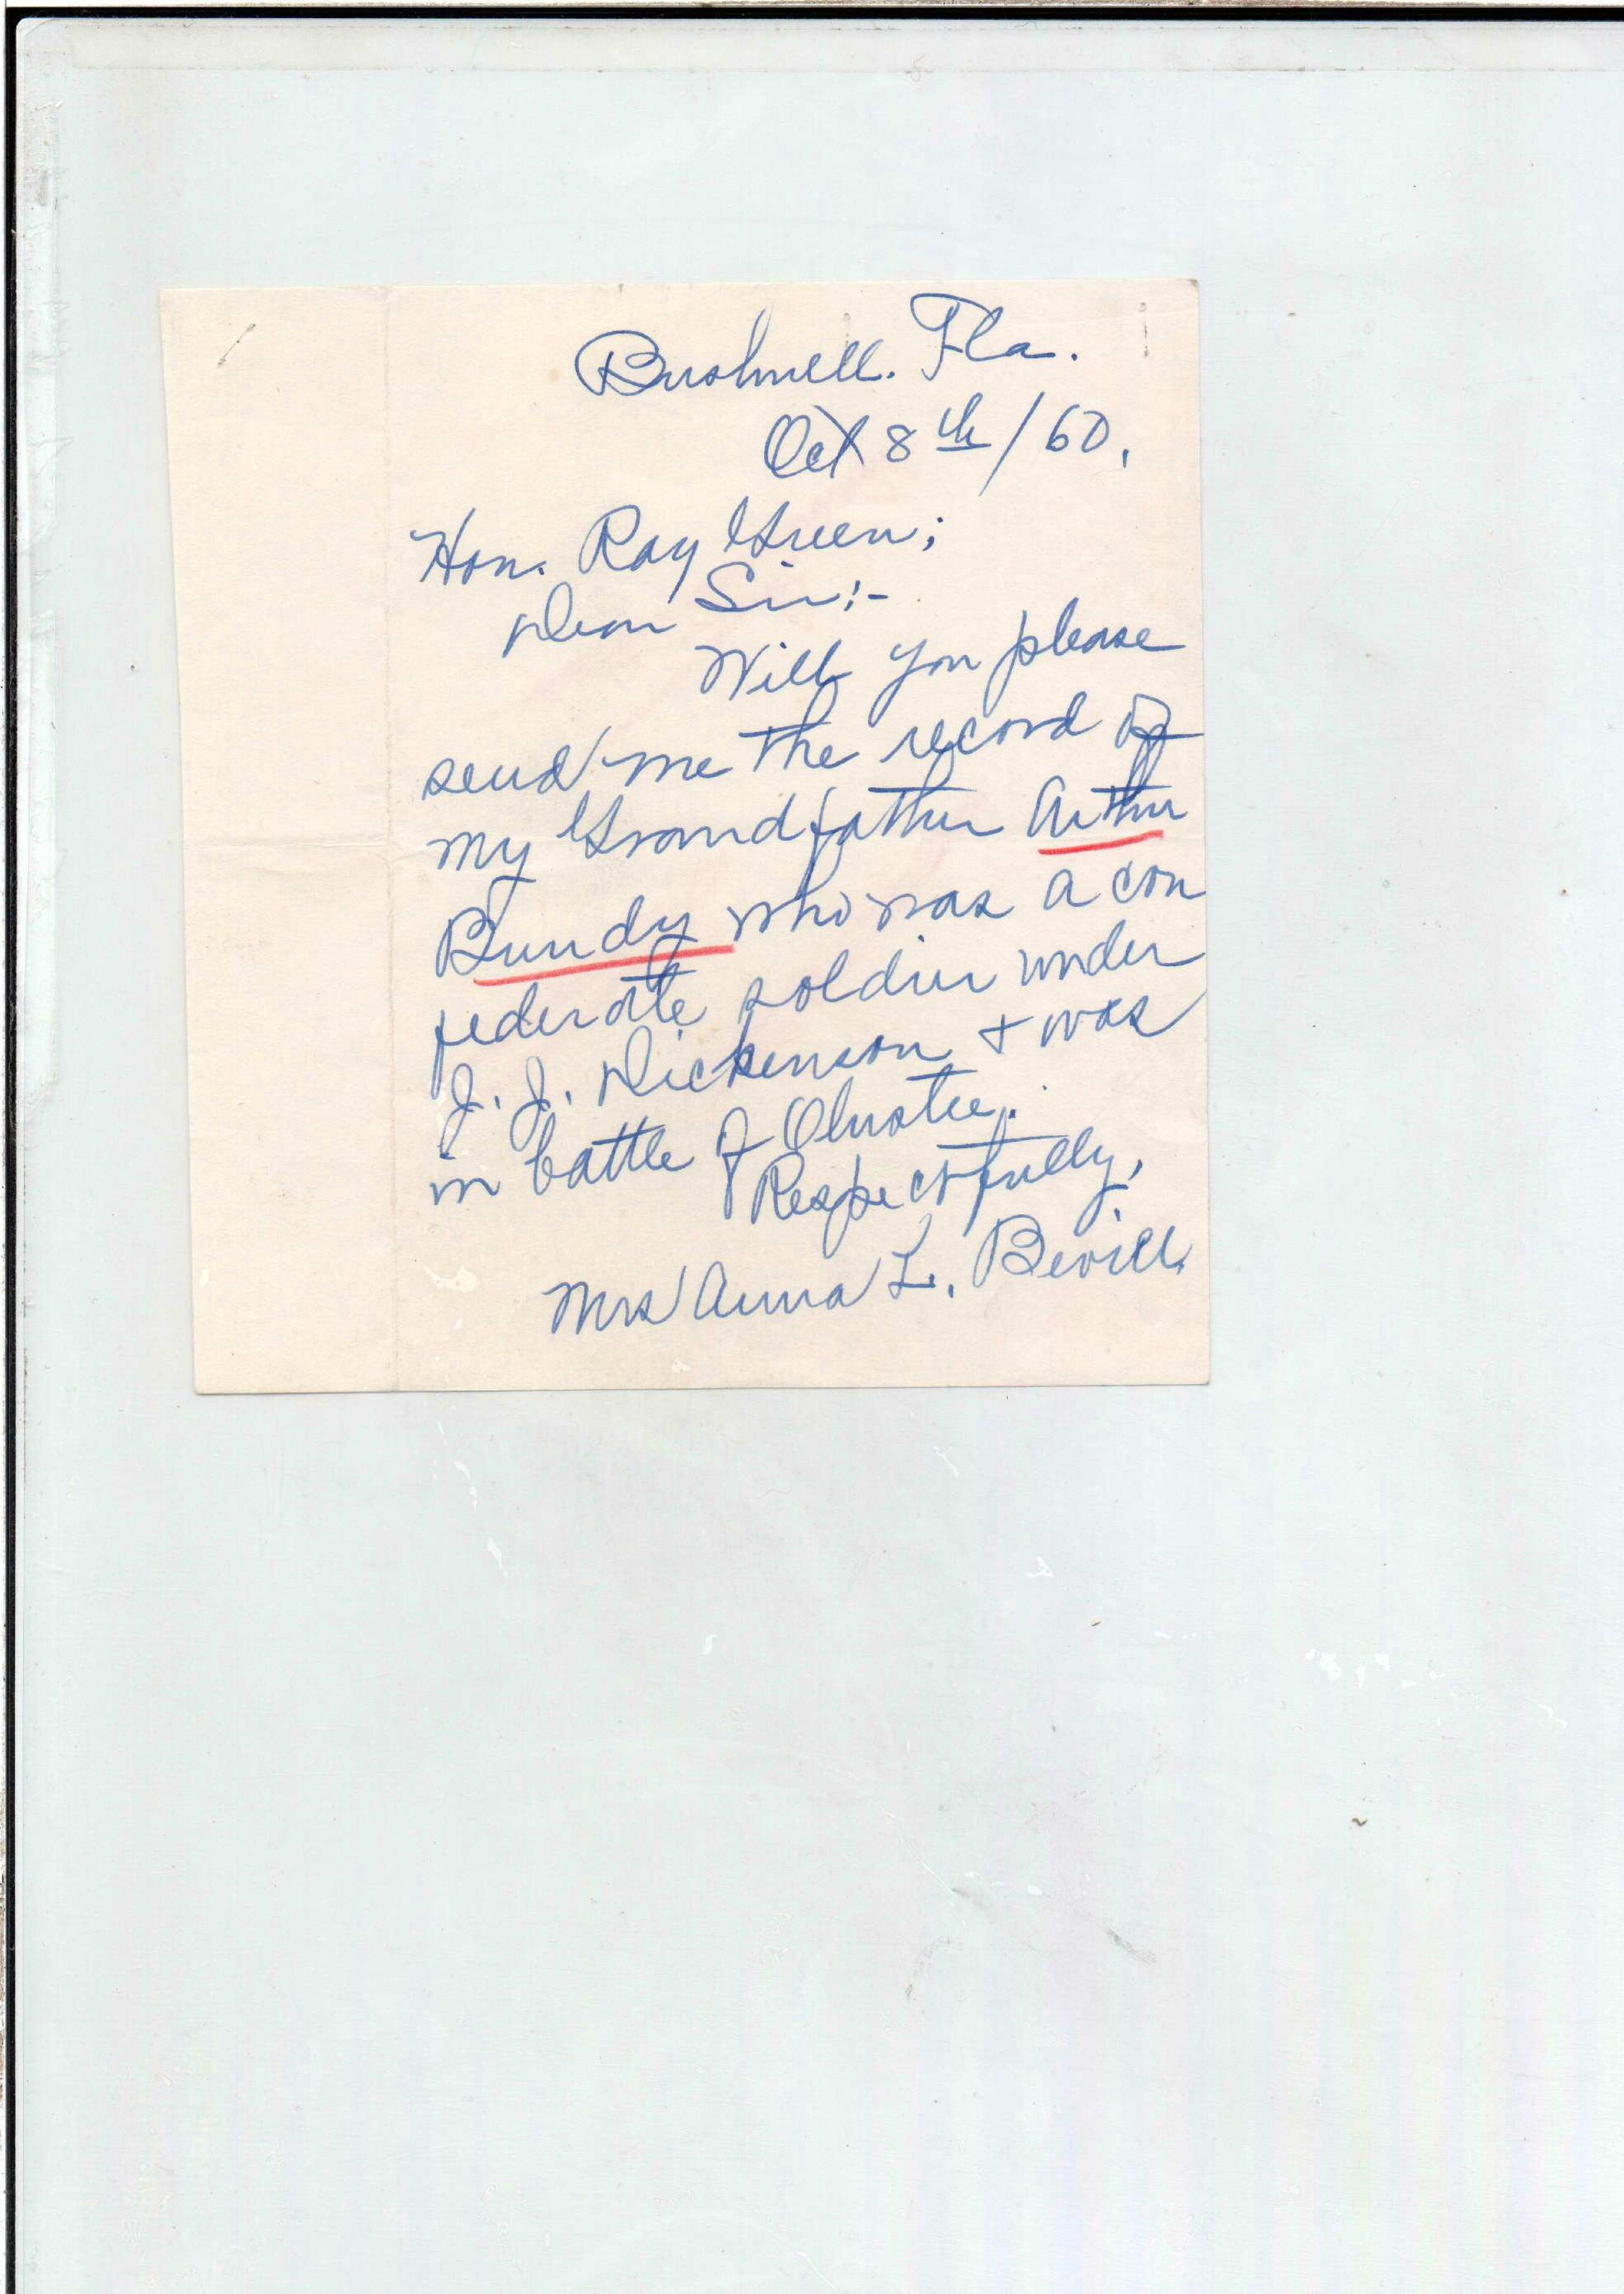 Bushnell. Fla.
Oct 8th/60.
Hon. Ray Green;
Dear Sir:-
Will you please
send me the record of
my Grandfather Arthur
Bundy who was a con
federate soldier under
J. J. Dickenson + was
in battle of Olustee.
Respectfully,
Mrs Anna L. Bevill.